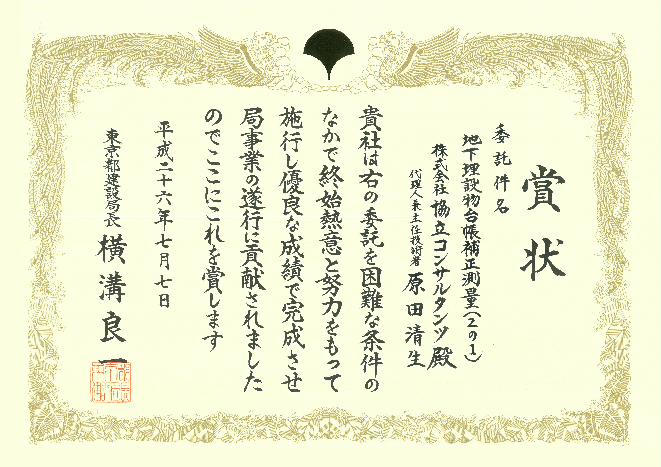 賞状
委託件名
地下埋設物台帳補正測量(201)
株式会社 協立コンサルタンツ殿
代理人兼主任技術者 原田清生
貴社は右の委託を困難な条件の
なかで終始熱意と努力をもって
施行し優良な成績で完成させ
局事業の遂行に貢献されました
のでここにこれを賞します
平成二十六年七月七日
東京都建設局長 横溝良一